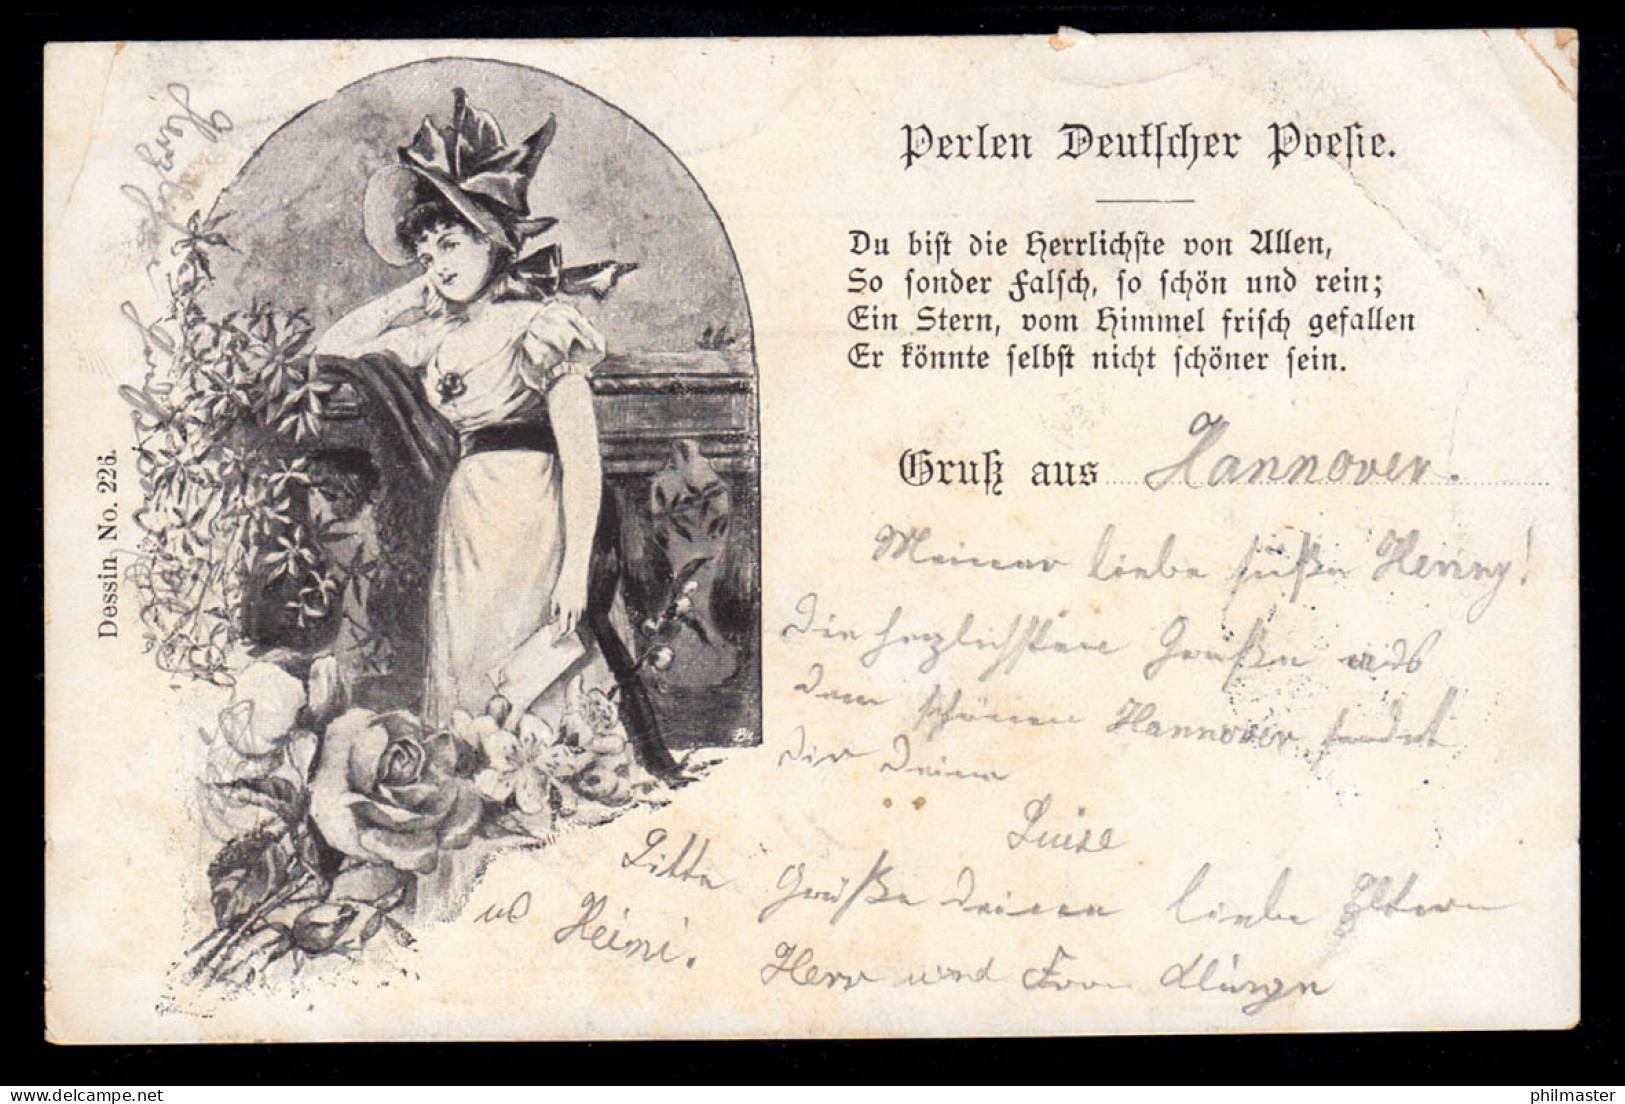 Perlen Deutscher Poesie.
Du bist die Herrlichste von Allen,
So sonder Falsch, so schön und rein;
Ein Stern, vom Himmel frisch gefallen
Er könnte selbst nicht schöner sein.
Gruß aus Hannover.
Meiner liebe süße Henny!
Die herzlichsten Grüße aus
dem schönen Hannover sendet
dir deine
Luise
Bitte Grüße deinen liebe Eltern
Herr und Frau
u Heini.
Dessin No. 226.
philmaster